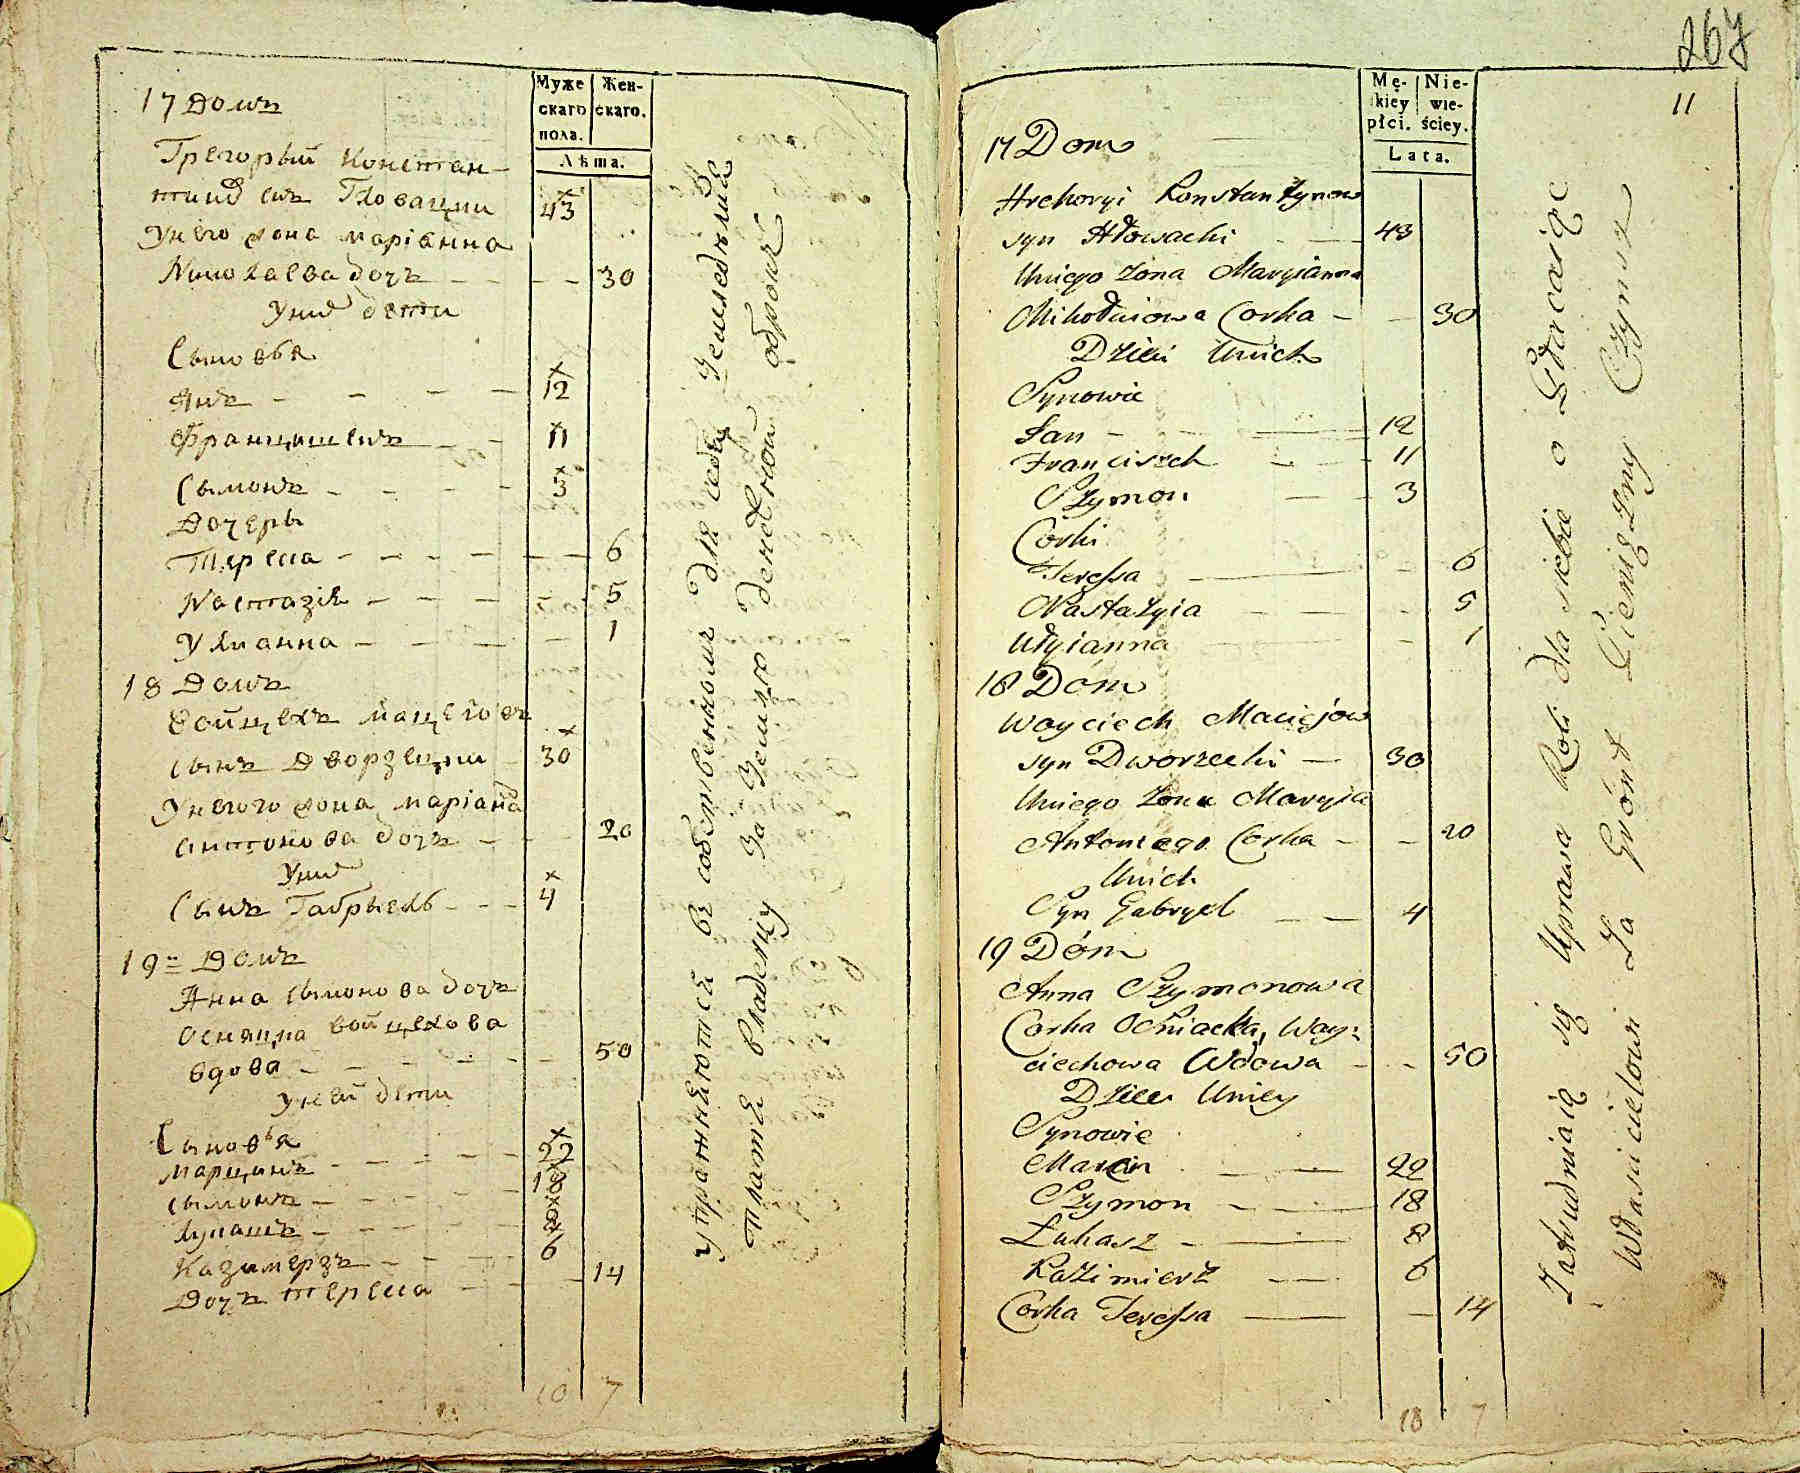 Муже
скаго
пола.
Жен-
скаго.
Лѣта.
17 Домъ
Грегорый Констан-
тинов сынъ Гловацки 43
Унего жона маріанна
Николаева дочъ - - - - 30
Уних дети
Сыновья
Янъ - - - - 12
Францишекъ - - 11
Сымонъ - - - - 3
Дочеры
Тереса - - - - - - 6
Настазія - - - - - 5
Улианна - - - - - 1
18 Домъ
Войцехъ мацеіовъ
сынъ Дворзецки - 30
Унего жона маріана
антонова дочъ - - - 20
Уних
Сынъ Габрыель - - - 4
19ii Домъ
Анна сымонова дочъ
Осняцка войцехова
вдова - - - - - - 50
Уней дети
Сыновья
марцинъ - - - - - 22
сымонъ - - - - - 18
лукашъ - - - - - 8
Казимерзъ - - - - 6
Дочъ тереса - - - 14
10 7
упражняются въ собственномъ для себя Земледѣлии
платя владельцу За Землю денежной оброкъ
267
11
Mę-
kiey
płci.
Nie-
wie-
ściey.
Lata.
17 Dom
Hrehoryi Konstantynow
syn Hłowacki - - 43
Uniego Żona Maryianna
Mikołaiowa Corka - - 30
Dzieci Unich
Synowie
Jan - - - 12
Franciszek - - - 11
Szymon - - 3
Corki
Teressa - - 6
Nastazyia - - - - 5
Ulyianna - - 1
18 Dóm
Woyciech Maciejow
syn Dworzecki - 30
Uniego Żona Maryia
Antoniego Corka - - 20
Unich
Syn Gabryel - - 4
19 Dóm
Anna Szymonowa
Corka Ośniacka, Woy:
ciechowa Wdowa - - 50
Dzieci Uniey
Synowie
Marcin - - 22
Szymon - - - 18
Łukasz - - 8
Kazimierz - - 6
Corka Teressa - - 14
10 7
Zatrudniaią się Uprawą Roli dla siebie o Płacaiąc
Właścicielowi Za Grónt Pieniężny Czynsz